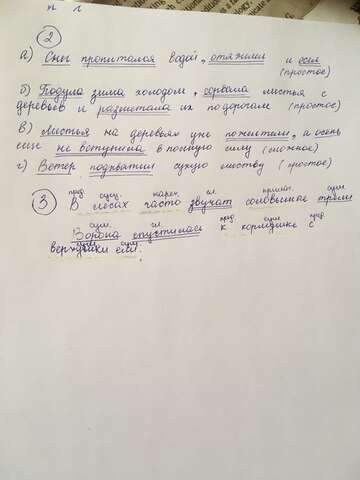 2
а) Снег пропитался водой, отяжелел и осел
(простое)
б) Подула зима холодом, сорвала листья с
деревьев и разметала их по дорогам (простое)
в) Листья на деревьях уже пожелтели, а осень
еще не вступила в полную силу (сложное)
г) Ветер подхватил сухую листву (простое)
пред. сущ. нареч. гл. прилаг. сущ.
3 В лесах часто звучат соловьиные трели
сущ. гл. пред. сущ. пред.
Ворона опустилась к кормушке с
сущ. сущ.
верхушки ели.